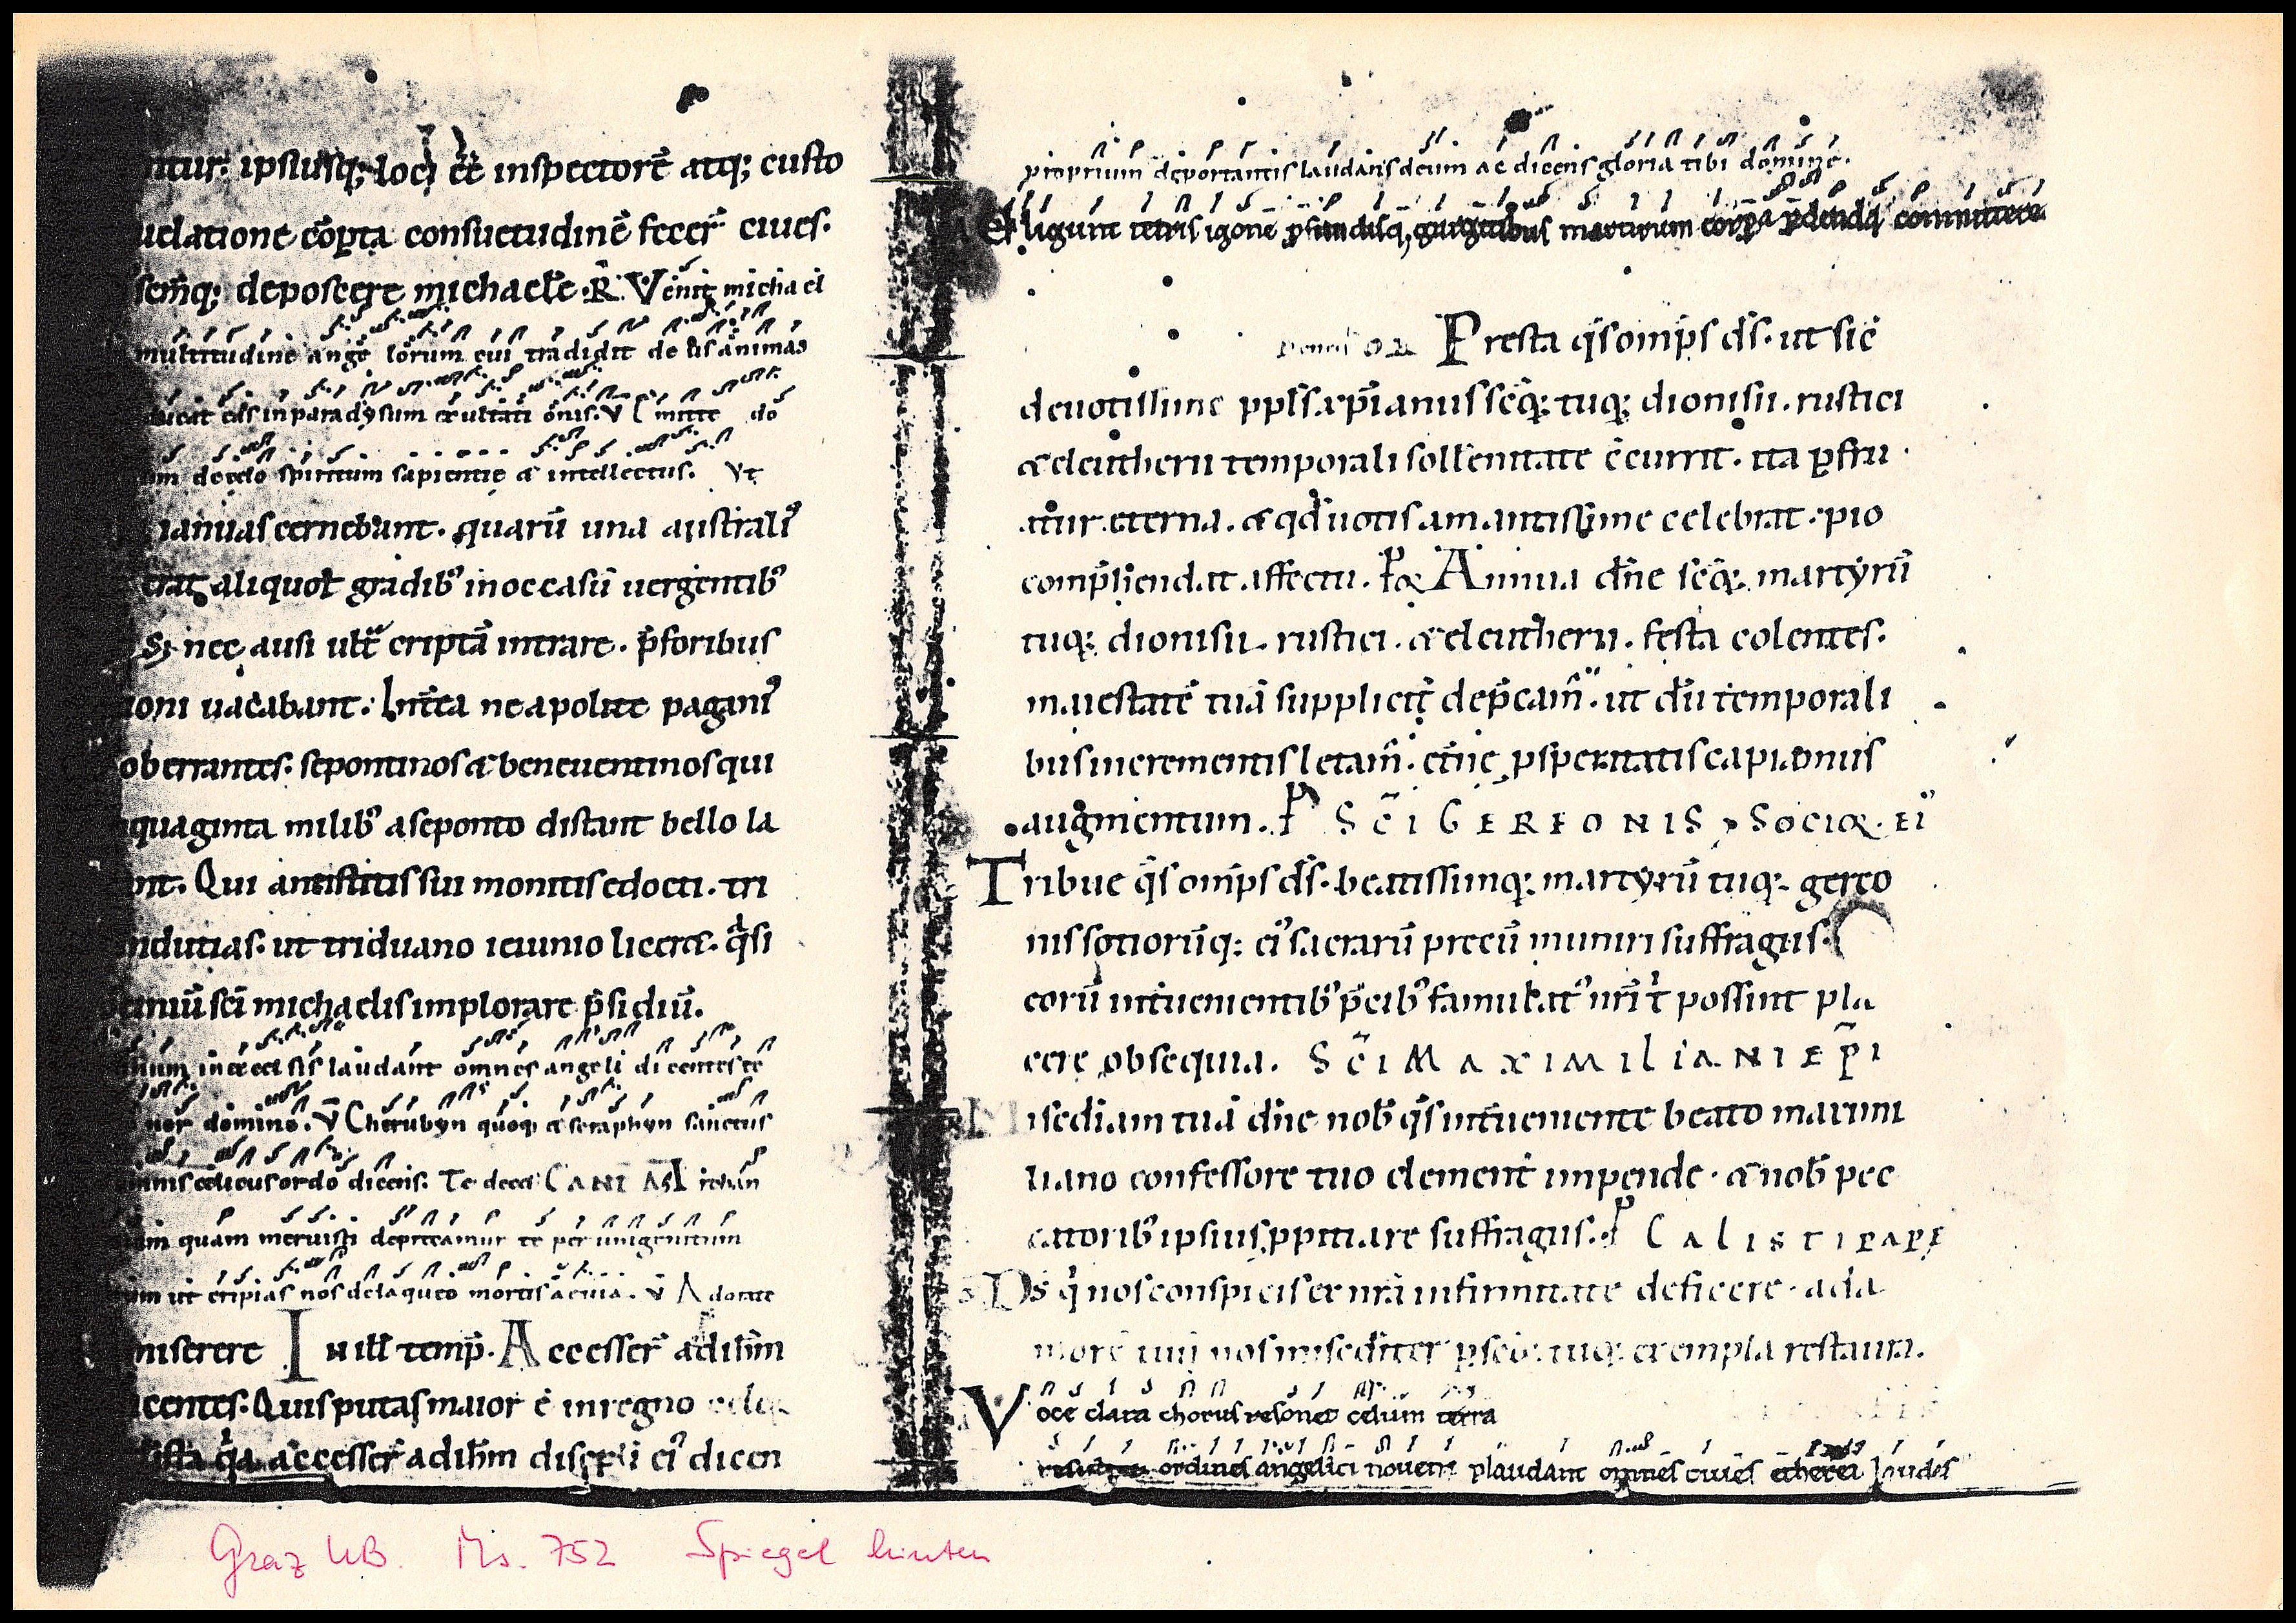 ntur. ipsiusq; loci ee͂ inspectorē atq; custo
uelatione co͂pta consuetudinē fecer̄ ciues.
sem̄q; deposcere michaele. R. Venit michael
multitudine angelorum cui tradidit deus animas
ducat eas in paradysum exultationis. V Emitte do
de celo spiritum sapientie & intellectus. Vt
ianuas cernebant. quarū una australi᾽
erat aliquot gradib᾽ in occasū uergentib᾽
S; nec ausi criptā intrare. p̄foribus
ioni uacabant. Int̄ea neapolite pagani᾽
oberrantes. sepontinos & beneuentinos qui
quaginta milib᾽ aseponto distant bello la
nt. Qui antistitis sui monitis edocti. tri
ndutias. ut triduano ieiunio liceret. q̄si
sci michaelis implorare p̄sidiū.
in excelsis laudant omnes angeli dicentes te
domino. V Cherubyn quoq; & seraphyn sanctus
celicus ordo dicens. Te decet
quam meruisti deprecamur te per unigenitum
ut eripias nos de laqueo mortis aeuia. V Adorate
miserere In ill̄ temp̄. Accesser̄ ad ih̄m
centes. Quis putas maior ē in regno celo
ista q̄a accesser̄ ad ih̄m discip̄li ei᾽ dicen
proprium deportantis laudans deum ac dicens gloria tibi domine.
Eligunt tetris igone p̄fundisq; gurgitibus martirum corp̄a p̄denda committere
Presta q̄s omp̄s d̄s. ut sic̄
deuotissime ppl̄s xp̄ianus sc̄oꝝ tuoꝝ dionisii. rustici
& eleutherii temporali sollēnitate c̄currit. ita ꝑfru
atur eterna. & qd̄ uotis amantissime celebrat. pio
comp̄hendat affectu. Annua dn̄e sc̄oꝝ martyrū
tuoꝝ dionisii. rustici. & eleutherii. festa colentes.
maiestatē tuā supplicit̄ dep̄cam̄. ut dū temporali
bus incrementis letam̄. et̄ne ꝓsperitatis capiamus
augmentum. SC̄I GEREONIS SOCIOꝜ. EI᾽
Tribue q̄s omp̄s d̄s. beatissimoꝝ martyrū tuoꝝ gereo
nis sotiorūq; ei᾽ sacrarū precū muniri suffragiis.
eorū int̄uenientib᾽ p̄cib᾽ famulat᾽ nr̄i t᾽ possint pla
cere obsequia. SC̄I MAXIMILIANI EP̄I
Miscd̄iam tuā dn̄e nob̄ q̄s int̄ueniente beato maximi
liano confessore tuo clement̄ impende. & nob̄ pec
catorib᾽ ipsius ꝓpitiare suffragiis. CALISTI PAPE
Ds q̄ nos conspicis ex nr̄a infirmitate deficere. ad a
morē tuū nos miscd̄iter ꝑ sc̄oꝝ tuoꝝ exempla restaura.
Voce clara chorus resonet celum terra
ordines angelici nouem plaudant omnes ciues etherei laudes
Graz UB. Ms. 752 Spiegel hinten